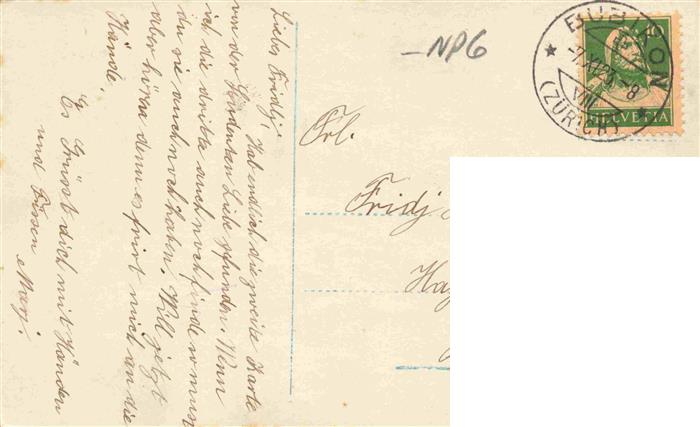 Liebes Fridj!
Hab endlich die zweite Karte
von der Studenten Liebe gefunden. Wenn
ich die dritte auch noch finde so must
du sie auch noch haben. Will jetzt
aber hören denn es friert mich an die
Hände.
Es Grüsst dich mit Händen
und Füssen
Marj.
-NP6
Frl.
Fridj
BUBIKON
-7.XI.23-8
VIII
(ZÜRICH)
10
HELVETIA